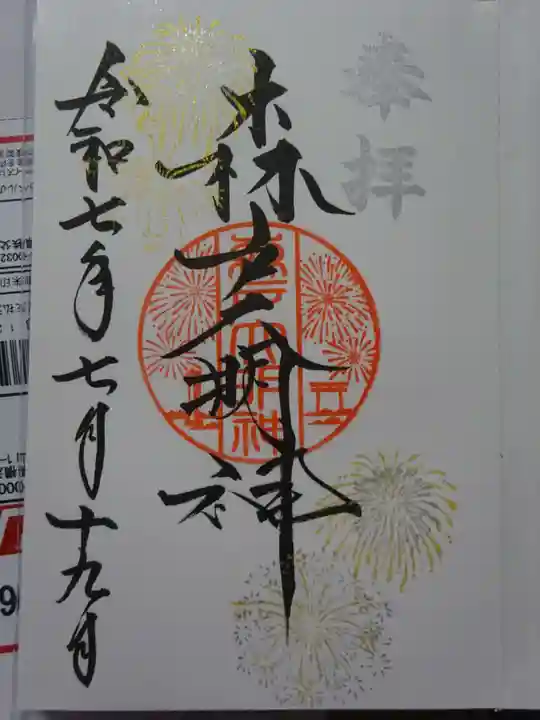 奉拝
森戸大明神
令和七年七月十九日